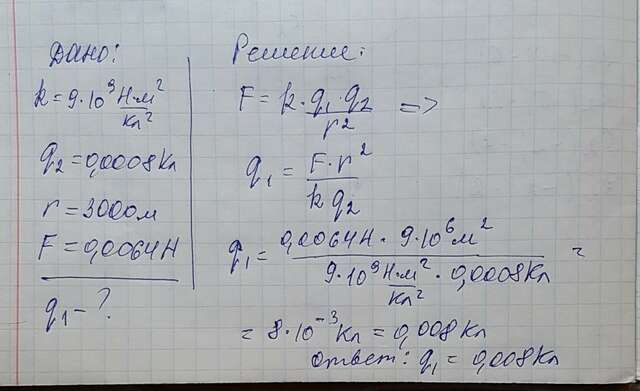 Дано:
k = 9·10⁹ Н·м²/Кл²
q₂ = 0,0008 Кл
r = 3000 м
F = 0,0064 Н
q₁ - ?
Решение:
F = k·q₁·q₂/r² =>
q₁ = F·r²/kq₂
q₁ = 0,0064 Н · 9·10⁶ м²/9·10⁹ Н·м²/Кл² · 0,0008 Кл =
= 8·10⁻³ Кл = 0,008 Кл
Ответ: q₁ = 0,008 Кл